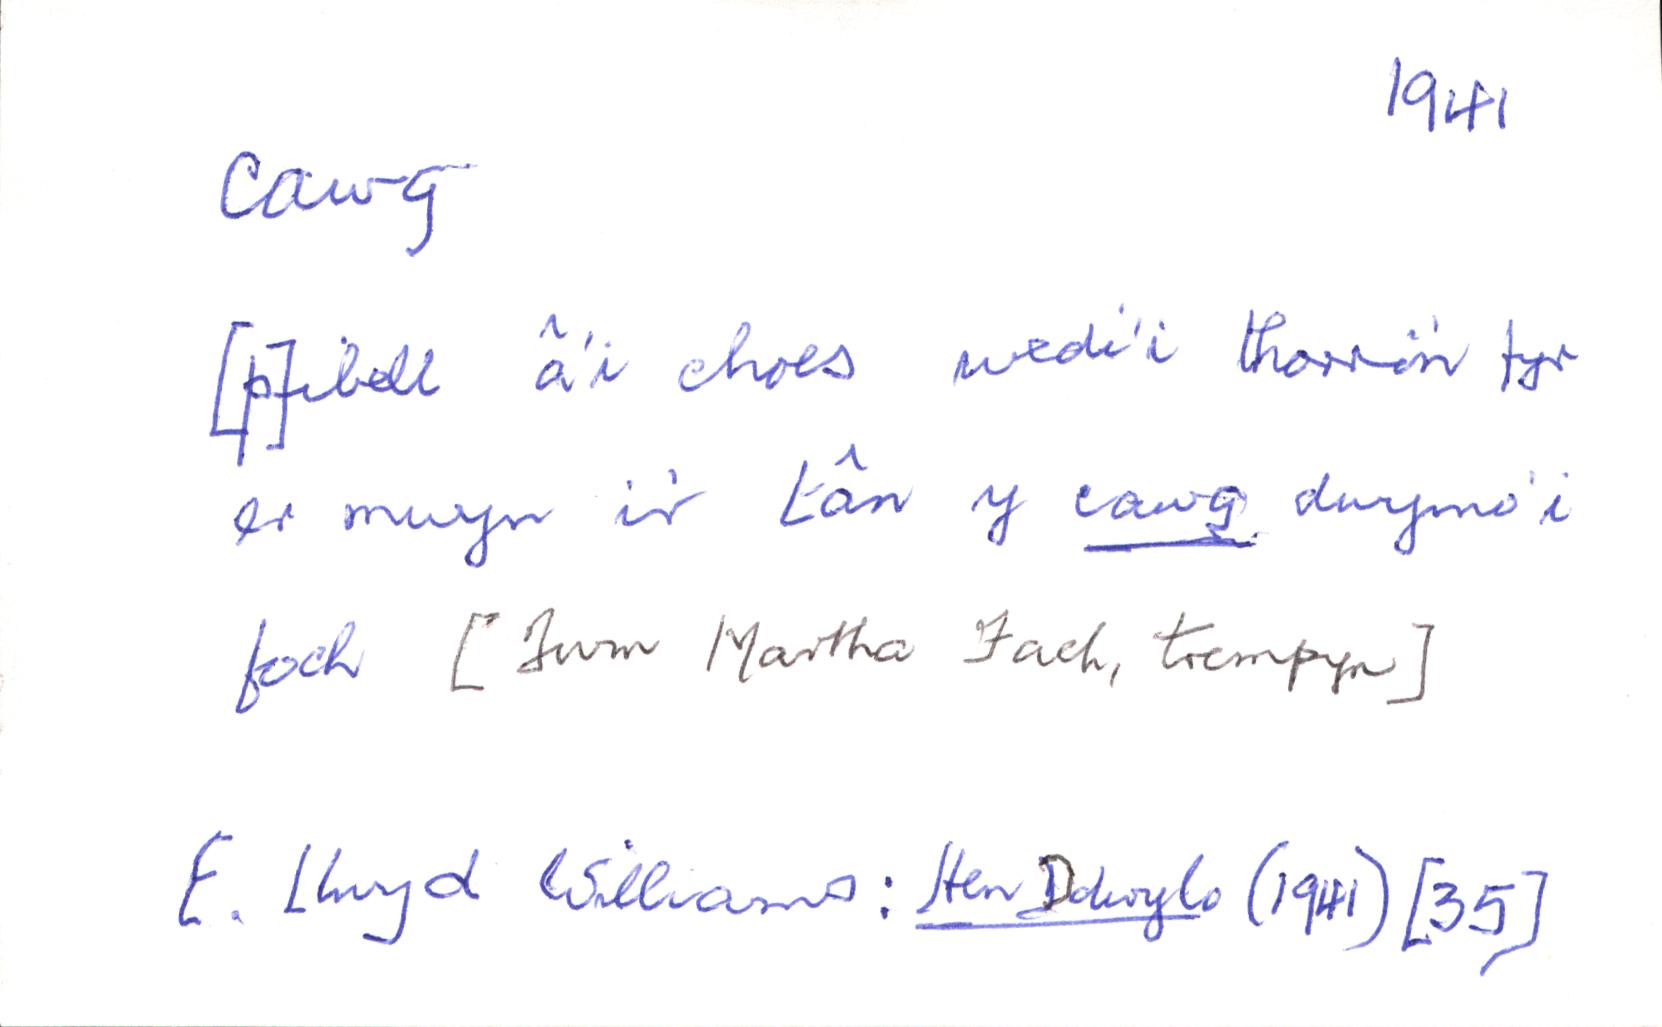 1941
cawg
[p]ibell â'i choes wedi'i thorri'n fyr
er mwyn i'r tân y cawg dwymo'i
foch [Twm Martha Fach, trempyn]
E. Llwyd Williams: Hen Ddwylo (1941) [35]